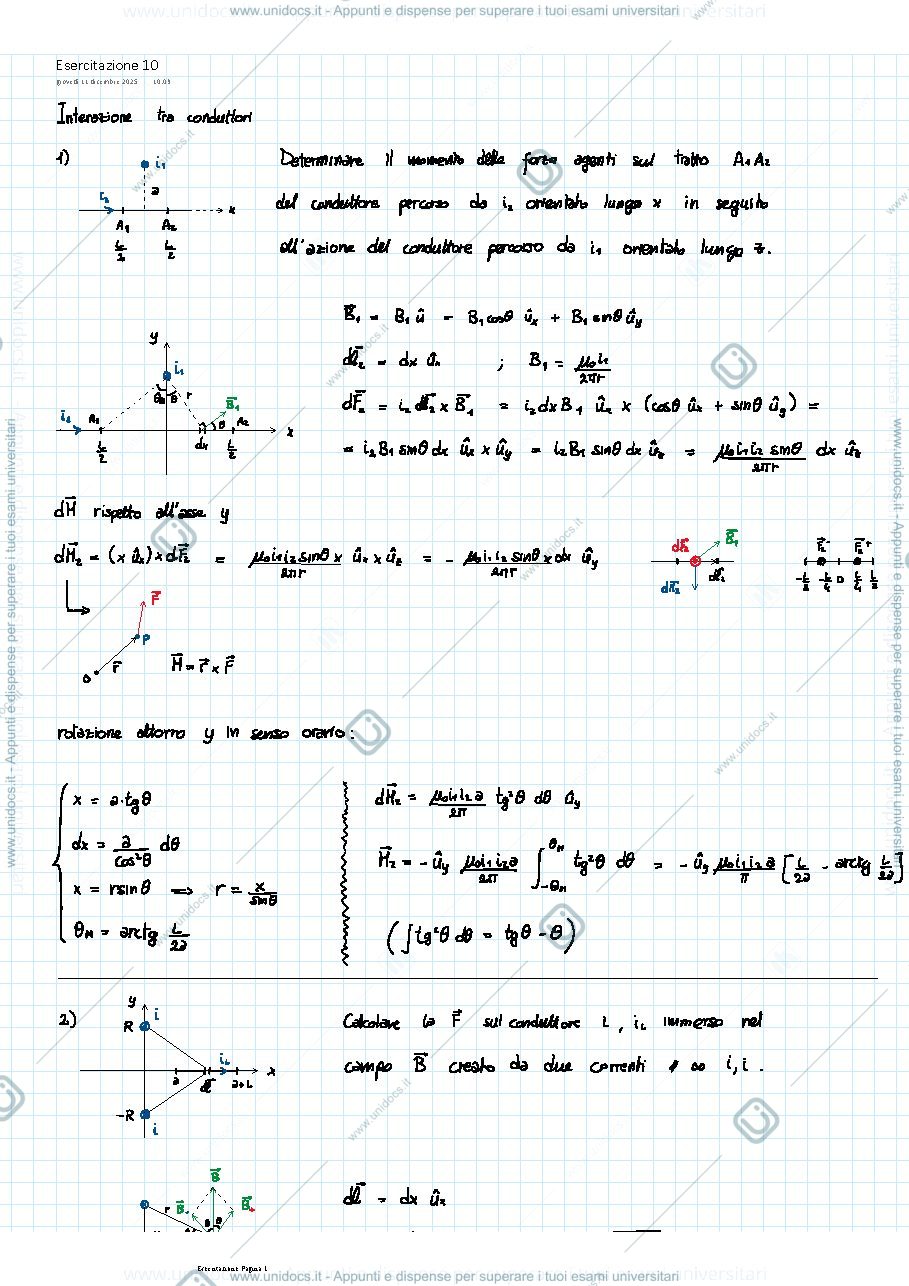 www.unidocs.it - Appunti e dispense per superare i tuoi esami universitari
Esercitazione 10
giovedì 11 dicembre 2025 10:03
Interazione tra conduttori
1)
i₁
a
i₂
x
A₁ A₂
L/2 L/2
Determinare il momento delle forze agenti sul tratto A₁A₂
del conduttore percorso da i₂ orientato lungo x in seguito
all'azione del conduttore percorso da i₁ orientato lungo z.
y
i₁
θ r
B⃗₁
i₂ A₁ θ A₂
x
L/2 dx L/2
B⃗₁ = B₁ û = B₁ cosθ ûₓ + B₁ sinθ û_y
dl⃗₂ = dx ûₓ ; B₁ = μ₀i₁/2πr
dF⃗₂ = i₂ dl⃗₂ x B⃗₁ = i₂dxB₁ ûₓ x (cosθ ûₓ + sinθ û_y) =
= i₂B₁ sinθ dx ûₓ x û_y = i₂B₁ sinθ dx û_z = μ₀i₁i₂ sinθ/2πr dx û_z
dM⃗ rispetto all'asse y
dM⃗₂ = (x ûₓ) x dF⃗₂ = μ₀i₁i₂ sinθ x/2πr ûₓ x û_z = - μ₀i₁i₂ sinθ x dx/2πr û_y
dF⃗₂ B⃗₁
dl⃗₂
dM⃗₂
F₂⁻ F₂⁺
-L/2 -L/4 0 L/4 L/2
F⃗
P
r⃗
O
M⃗ = r⃗ x F⃗
rotazione attorno y in senso orario:
x = a·tgθ
dx = a/cos²θ dθ
x = r sinθ ⟹ r = x/sinθ
θ_M = arctg L/2a
dM⃗₂ = μ₀i₁i₂a/2π tg²θ dθ û_y
M⃗₂ = - û_y μ₀i₁i₂a/2π ∫_{-θ_M}^{θ_M} tg²θ dθ = - û_y μ₀i₁i₂a/π [L/2a - arctg L/2a]
(∫tg²θ dθ = tgθ - θ)
2)
y
R i
i_L
x
a dl⃗ a+L
-R
i
Calcolare la F⃗ sul conduttore L, i_L immerso nel
campo B⃗ creato da due correnti // ∞ i, i.
B⃗
r B⃗₋ B⃗₊
θ θ
dl⃗ = dx ûₓ
Esercitazione Pagina 1
www.unidocs.it - Appunti e dispense per superare i tuoi esami universitari